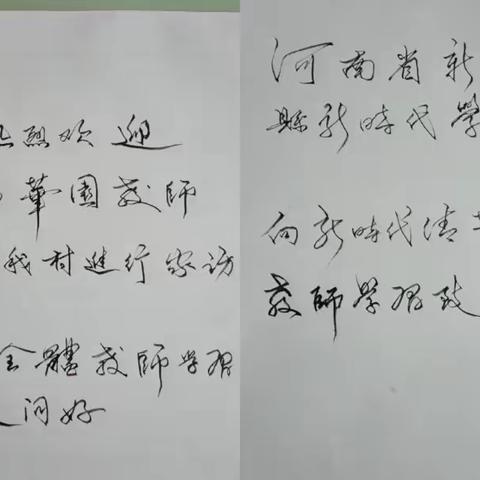 烈欢迎
華園教師
我村進行家访
全體教師学習
问好
河南省新
縣新時代學
向新時代清
教師學習致